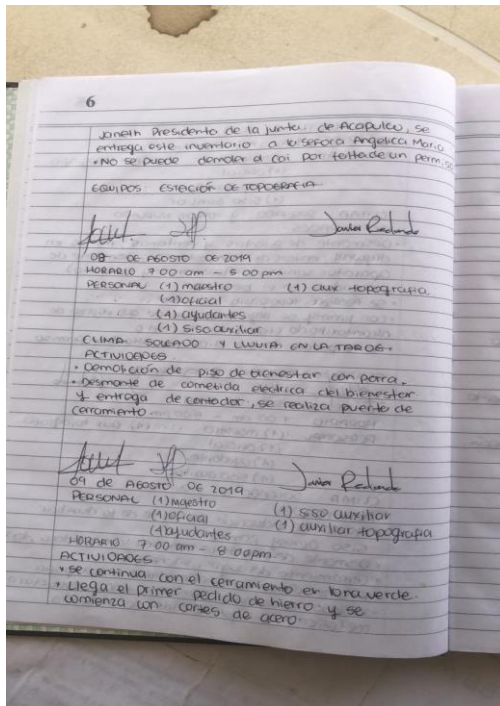 6
Janeth Presidenta de la junta de Acapulco, se
entrega este inventario a la señora Angelica Maria
• No se puede demoler el cai por falta de un permiso
EQUIPOS: ESTACIÓN DE TOPOGRAFIA
Javier Redondo
08 DE AGOSTO DE 2019
HORARIO 7:00 am - 5:00 pm
PERSONAL (1) maestro (1) aux topografia
(1) oficial
(4) ayudantes
(1) siso auxiliar
CLIMA SOLEADO Y LLUVIA EN LA TARDE.
ACTIVIDADES
• Demolición de piso de bienestar con porra.
• Desmonte de cometida electrica del bienestar
y entrega de contador, se realiza puerta de
cerramiento
Javier Redondo
09 de AGOSTO DE 2019
PERSONAL (1) maestro (1) siso auxiliar
(1) oficial (1) auxiliar topografia
(4) ayudantes
HORARIO 7:00 am - 8:00pm
ACTIVIDADES
• se continua con el cerramiento en lona verde
• Llega el primer pedido de hierro y se
comienza con cortes de acero